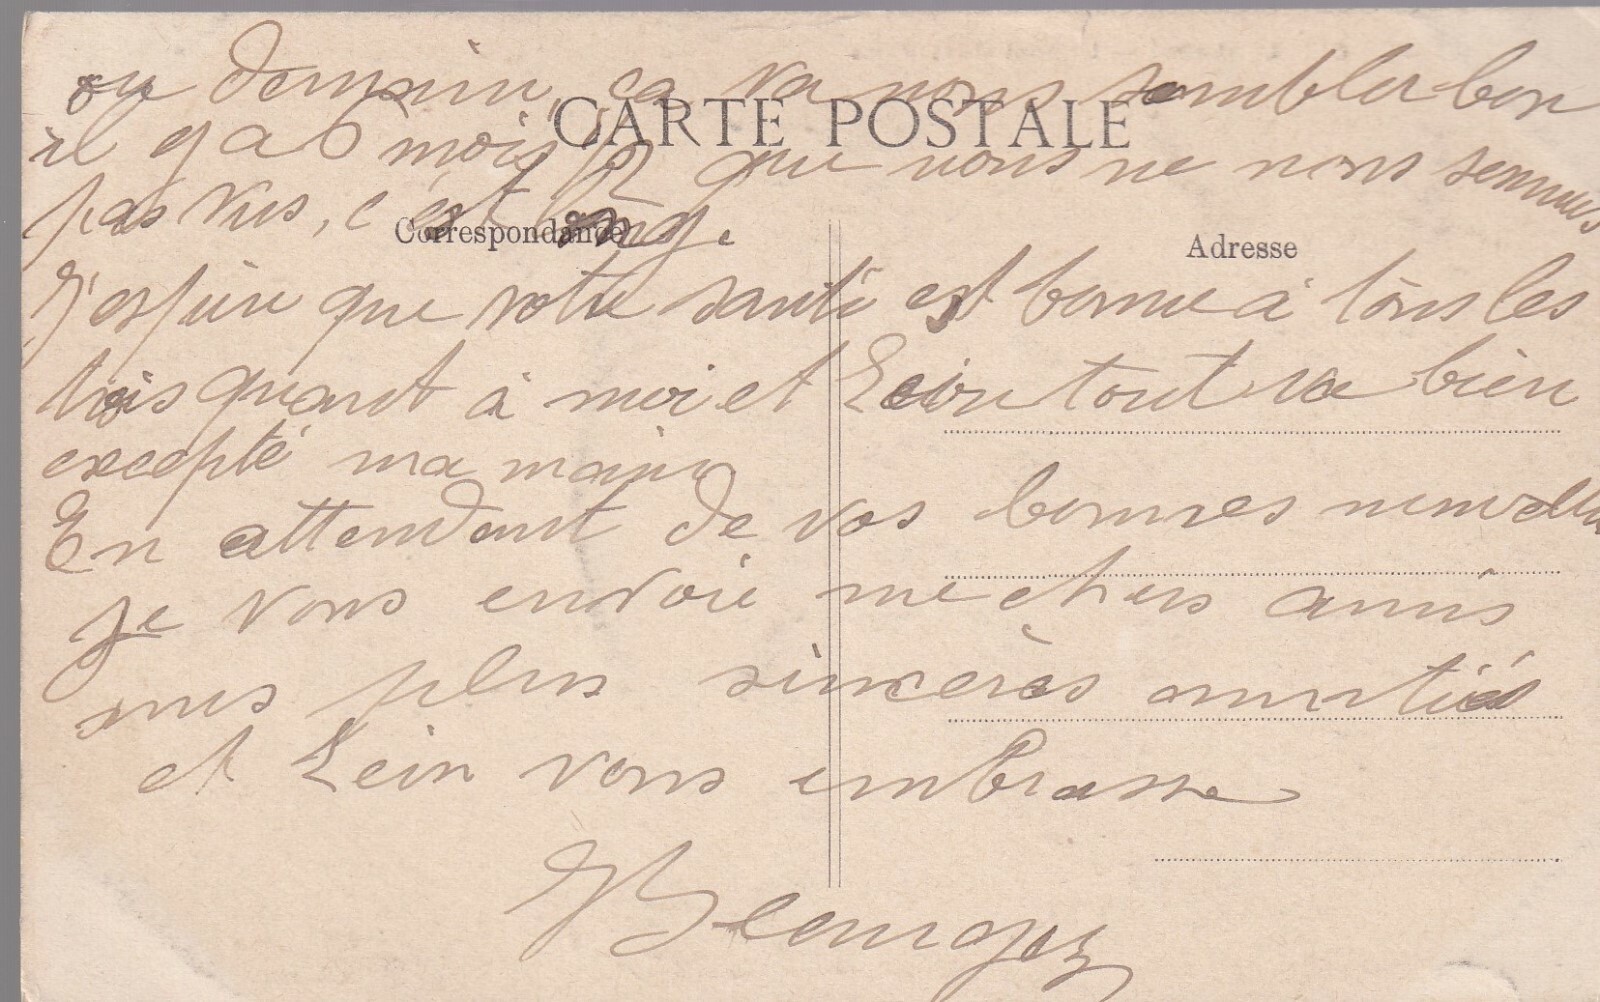 ou demain, ça va nous sembler bon
CARTE POSTALE
il y a 6 mois 1/2 que nous ne nous sommes
pas vus, c'est long.
Correspondance
Adresse
J'espère que votre santé est bonne à tous les
trois quant à moi et Léon tout va bien
excepté ma main
En attendant de vos bonnes nouvelles
je vous envoie me chers amis
mes plus sincères amitiés
et Léon vous embrasse